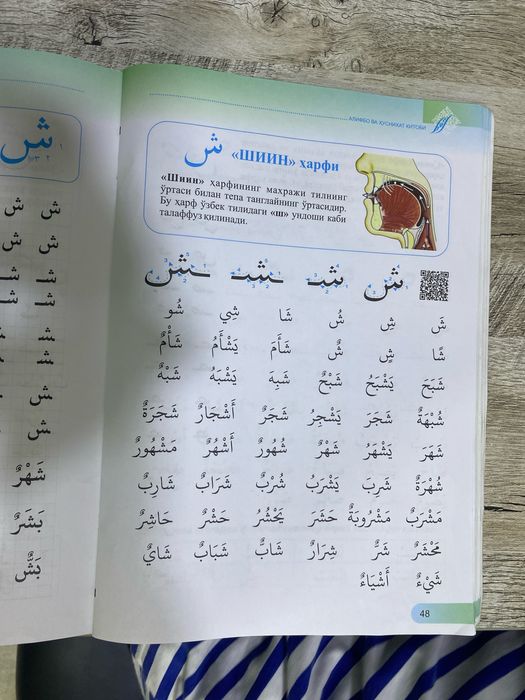 АЛИФБО ВА ҲУСНИХАТ КИТОБИ
ش «ШИИН» ҳарфи
«Шиин» ҳарфининг махражи тилнинг
ўртаси билан тепа танглайнинг ўртасидир.
Бу ҳарф ўзбек тилидаги «ш» ундоши каби
талаффуз қилинади.
ش شـ ـشـ ـش
شَ شِ شُ شَا شِي شُو
شًا شٍ شٌ شَأَمَ يَشْأَمُ شَأْمٌ
شَبَحَ يَشْبَحُ شَبْحٌ شَبِهَ يَشْبَهُ شَبْهٌ
شُبْهَةٌ شَجَرَ يَشْجُرُ شَجَرٌ أَشْجَارٌ شَجَرَةٌ
شَهَرَ يَشْهَرُ شَهْرٌ شُهُورٌ أَشْهُرٌ مَشْهُورٌ
شُهْرَةٌ شَرِبَ يَشْرَبُ شُرْبٌ شَرَابٌ شَارِبٌ
مَشْرَبٌ مَشْرُوبَةٌ حَشَرَ يَحْشُرُ حَشْرٌ حَاشِرٌ
مَحْشَرٌ شَرٌّ شِرَارٌ شَابٌّ شَبَابٌ شَايٌ
شَيْءٌ أَشْيَاءٌ
48
ش
ش ش
ش ش
شـ شـ
شـ شـ
ـشـ
ـشـ
ـش
ـش
شَهْرٌ
بَشَرٌ
بَشٌّ